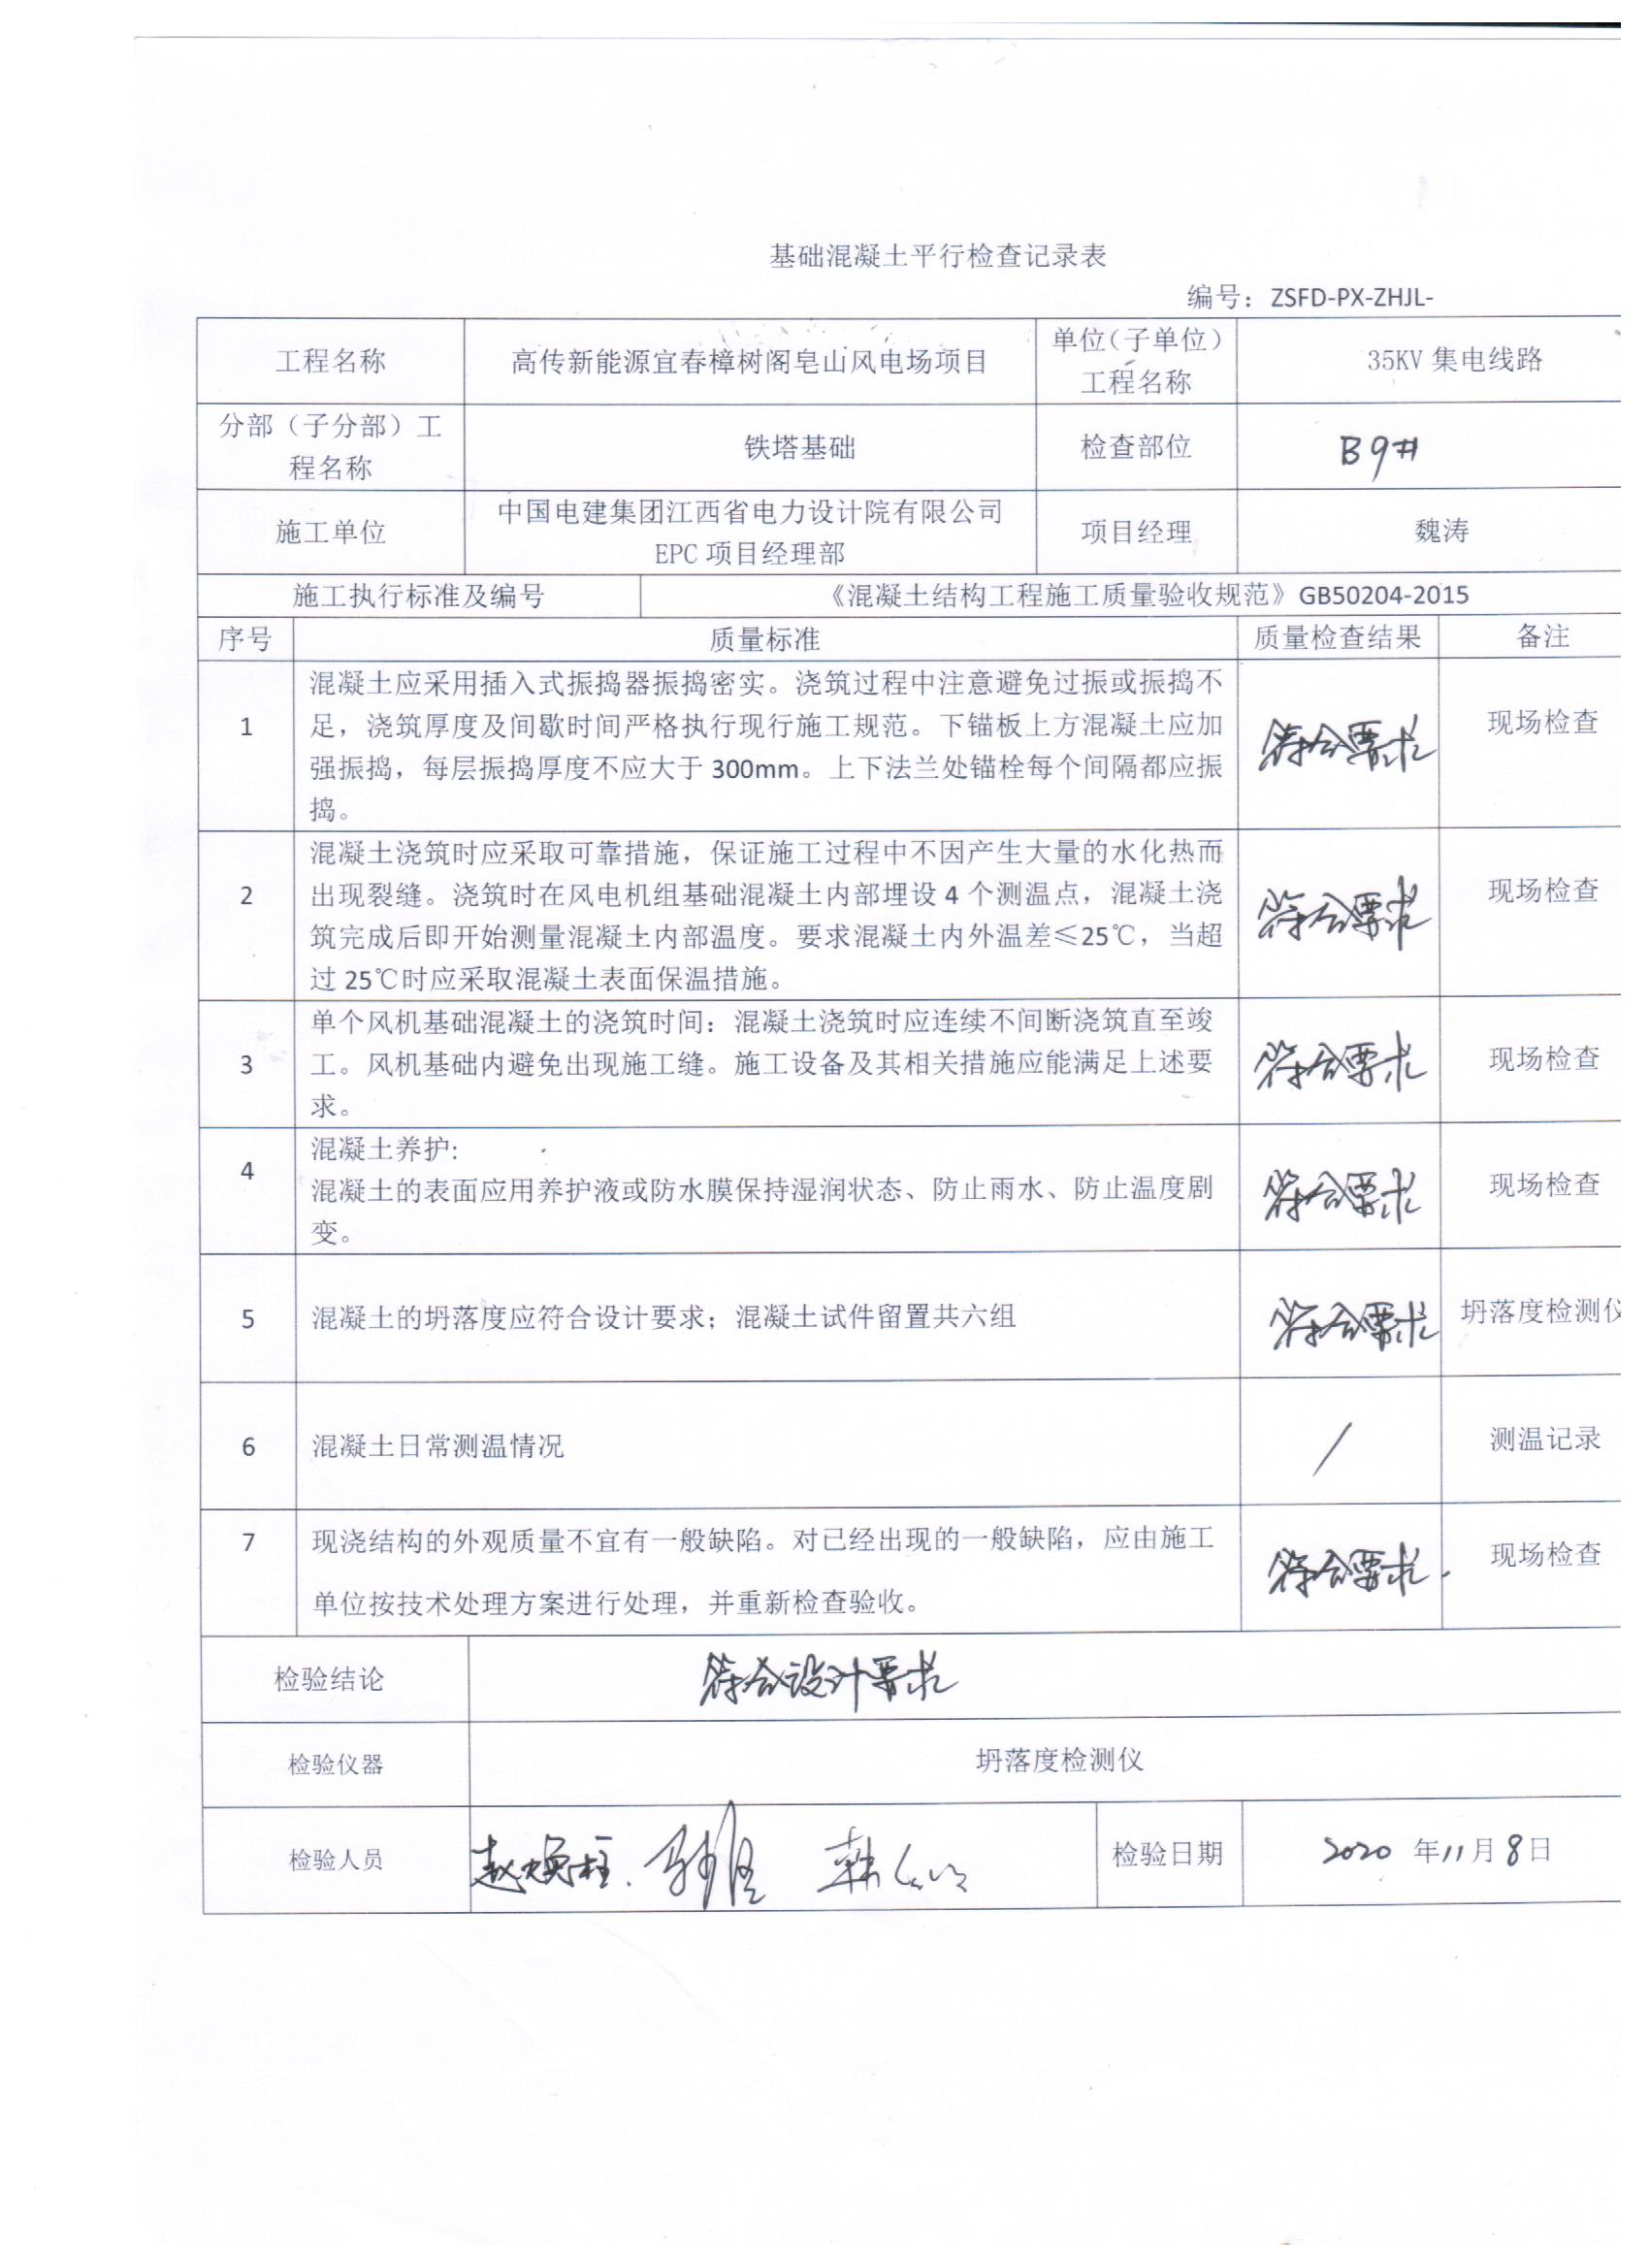 基础混凝土平行检查记录表
编号：ZSFD-PX-ZHJL-
工程名称
高传新能源宜春樟树阁皂山风电场项目
单位（子单位）
工程名称
35KV 集电线路
分部（子分部）工
程名称
铁塔基础
检查部位
B9#
施工单位
中国电建集团江西省电力设计院有限公司
EPC 项目经理部
项目经理
魏涛
施工执行标准及编号
《混凝土结构工程施工质量验收规范》GB50204-2015
序号
质量标准
质量检查结果
备注
1
混凝土应采用插入式振捣器振捣密实。浇筑过程中注意避免过振或振捣不
足，浇筑厚度及间歇时间严格执行现行施工规范。下锚板上方混凝土应加
强振捣，每层振捣厚度不应大于 300mm。上下法兰处锚栓每个间隔都应振
捣。
符合要求
现场检查
2
混凝土浇筑时应采取可靠措施，保证施工过程中不因产生大量的水化热而
出现裂缝。浇筑时在风电机组基础混凝土内部埋设 4 个测温点，混凝土浇
筑完成后即开始测量混凝土内部温度。要求混凝土内外温差≤25℃，当超
过 25℃时应采取混凝土表面保温措施。
符合要求
现场检查
3
单个风机基础混凝土的浇筑时间：混凝土浇筑时应连续不间断浇筑直至竣
工。风机基础内避免出现施工缝。施工设备及其相关措施应能满足上述要
求。
符合要求
现场检查
4
混凝土养护:
混凝土的表面应用养护液或防水膜保持湿润状态、防止雨水、防止温度剧
变。
符合要求
现场检查
5
混凝土的坍落度应符合设计要求；混凝土试件留置共六组
符合要求
坍落度检测仪
6
混凝土日常测温情况
/
测温记录
7
现浇结构的外观质量不宜有一般缺陷。对已经出现的一般缺陷，应由施工
单位按技术处理方案进行处理，并重新检查验收。
符合要求.
现场检查
检验结论
符合设计要求
检验仪器
坍落度检测仪
检验人员
赵焕柱.
检验日期
2020 年11月8日